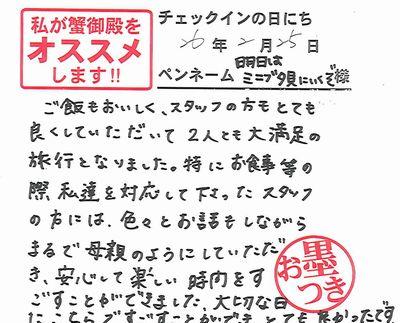 私が蟹御殿を
オススメ
します!!
チェックインの日にち
26年2月25日
ペンネーム 明日はミニブタ見にいくぞ様
ご飯もおいしく、スタッフの方もとても
良くしていただいて2人とも大満足の
旅行となりました。特にお食事等の
際、私達を対応して下さったスタッフ
の方には、色々とお話もしながら
まるで母親のようにしていただ
き、安心して楽しい時間をす
ごすことができました。大切な日
にこちらですごすことができ、とても良かったです
お墨つき